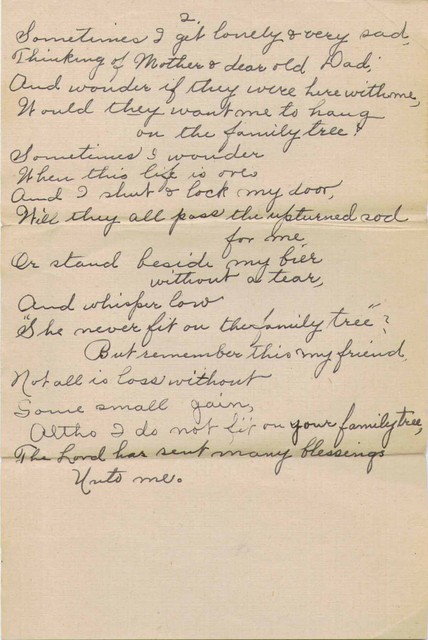 2.
Sometimes I get lonely & very sad,
Thinking of Mother & dear old Dad;
And wonder if they were here with me,
Would they want me to hang
on the family tree?
Sometimes I wonder
When this life is over
And I shut & lock my door,
Will they all pass the upturned sod
for me
Or stand beside my bier
without a tear,
And whisper low
"She never fit on the family tree"?
But remember this my friend,
Not all is loss without
Some small gain,
Altho I do not fit on your family tree,
The Lord has sent many blessings
Unto me.